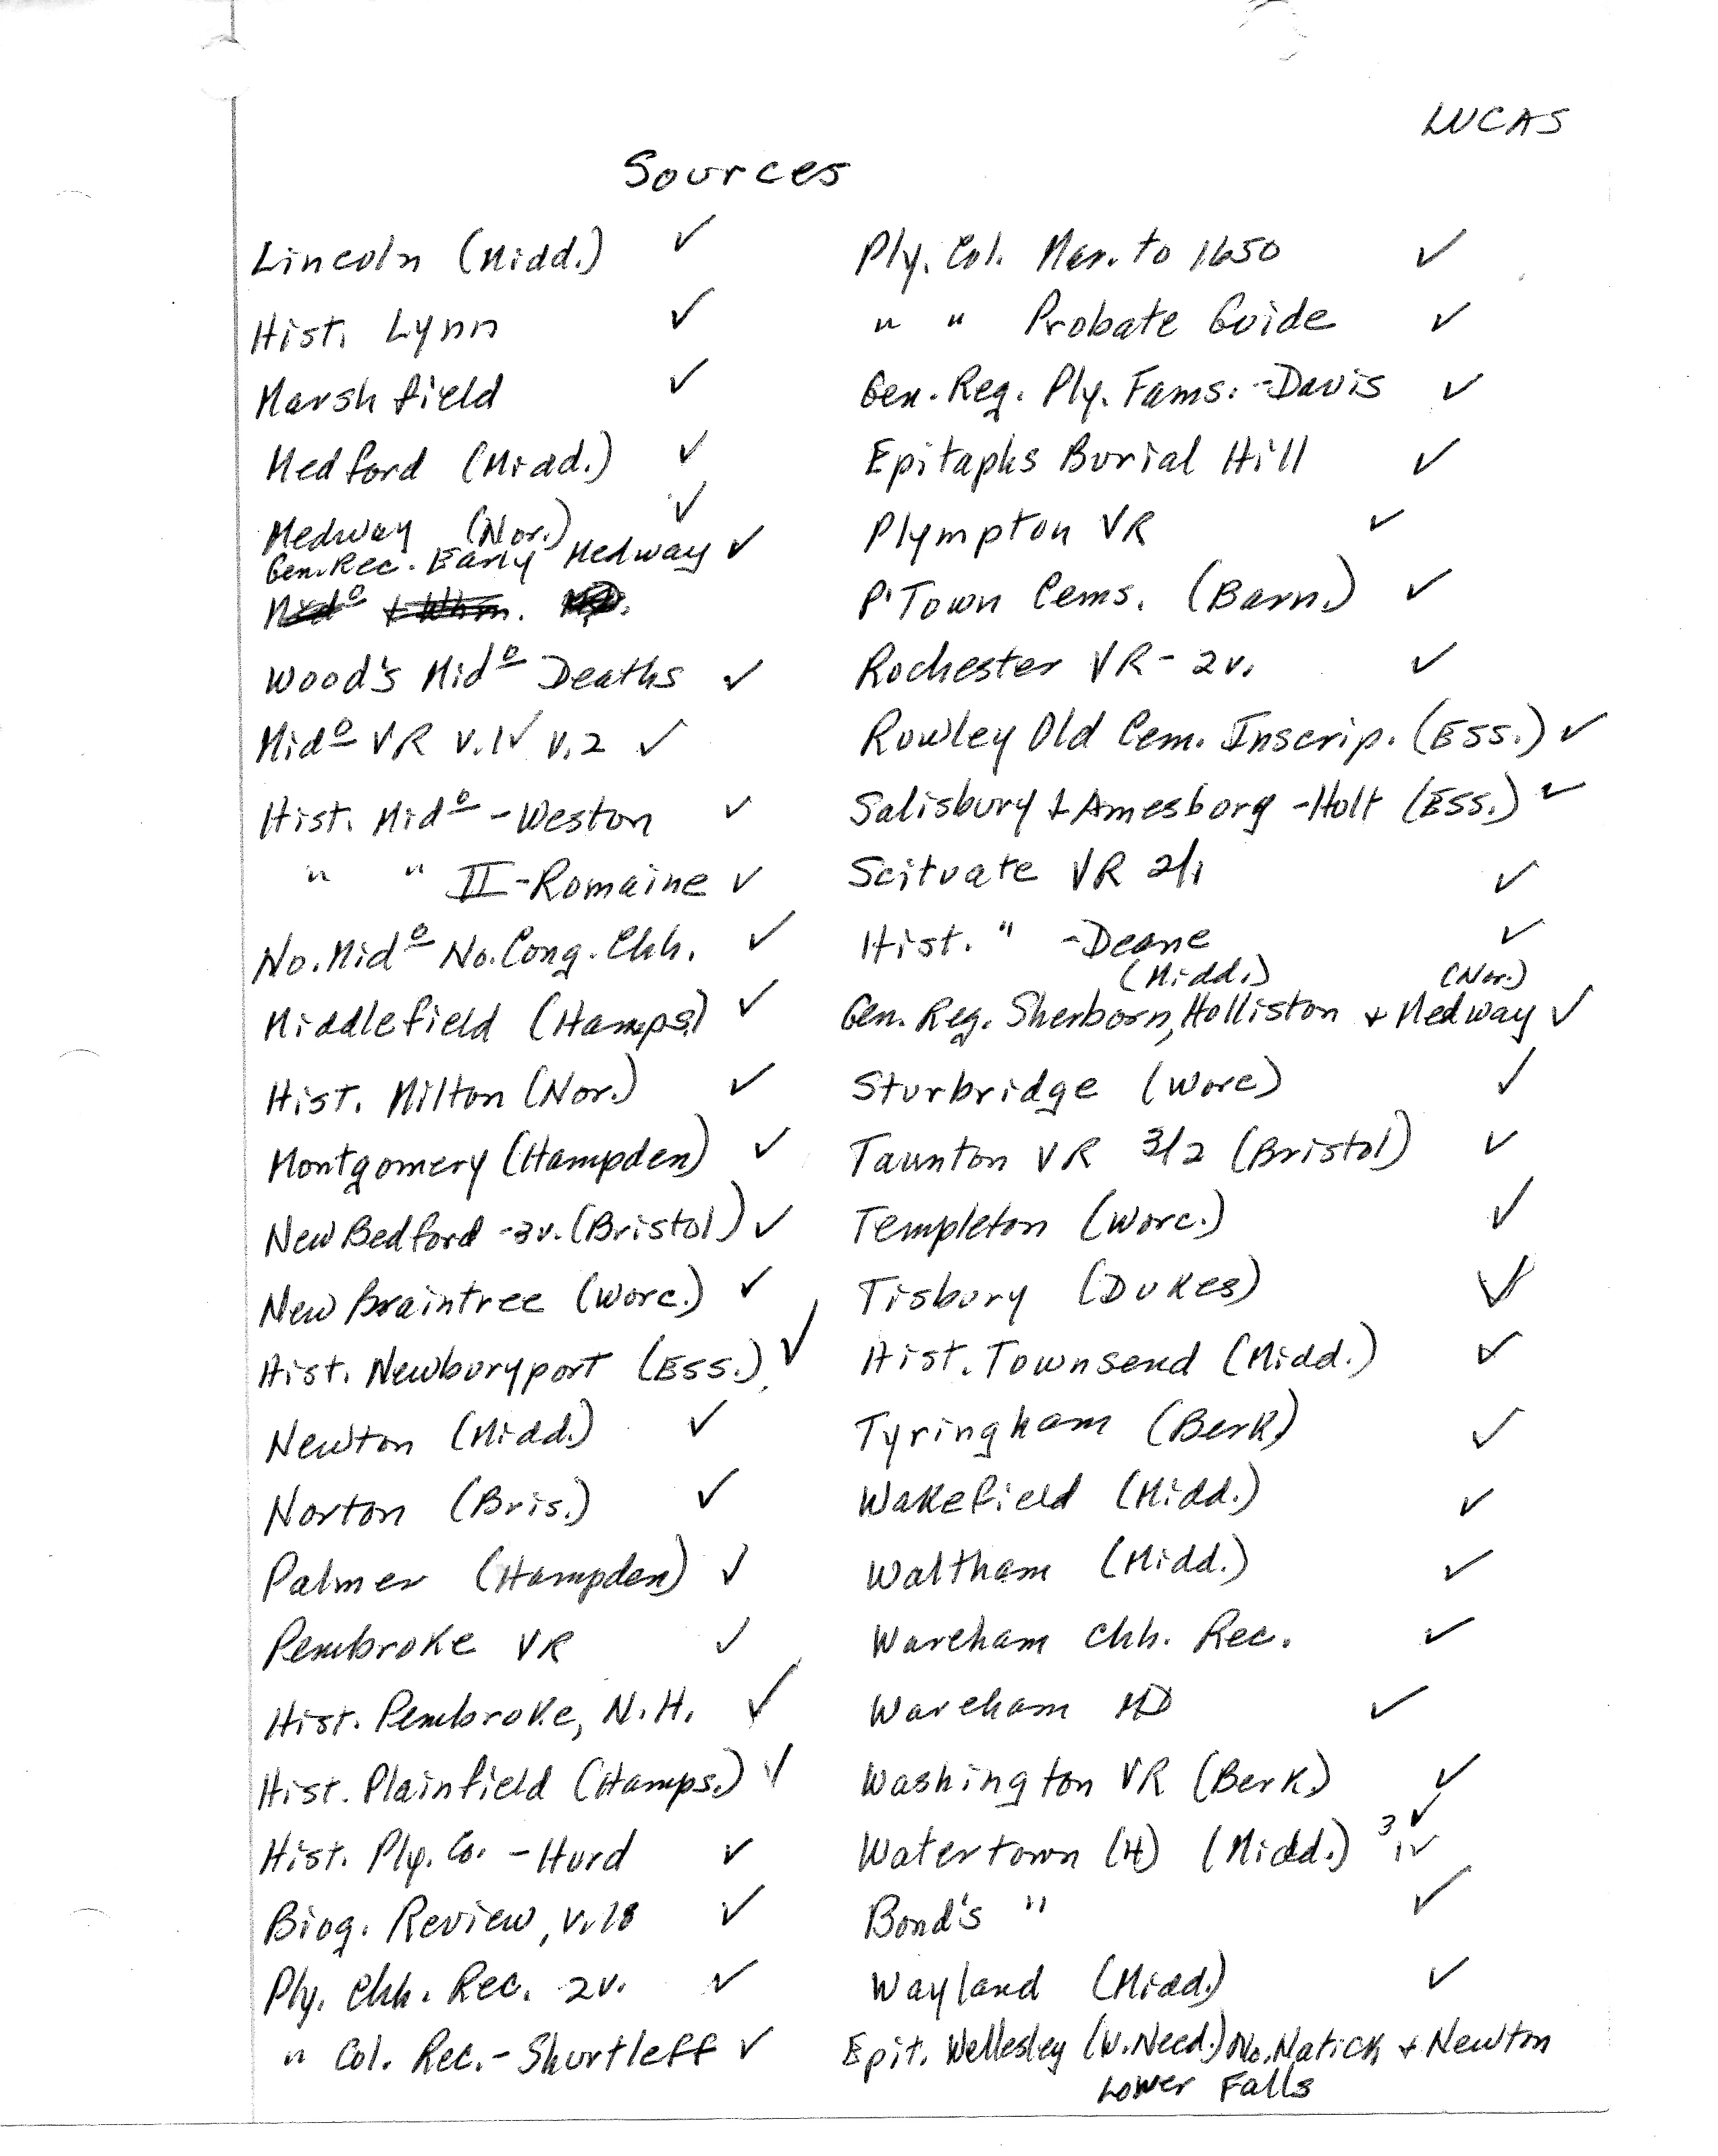 LUCAS
Sources
Lincoln (Midd.) ✓
Hist. Lynn ✓
Marshfield ✓
Medford (Midd.) ✓
Medway (Nor.) ✓
Gen. Rec. Early Medway ✓
Wood's Midº Deaths ✓
Midº VR v.1✓ v.2 ✓
Hist. Midº - Weston ✓
" " II - Romaine ✓
No. Midº No. Cong. Chh. ✓
Middlefield (Hamps.) ✓
Hist. Milton (Nor.) ✓
Montgomery (Hampden) ✓
New Bedford - 3v. (Bristol) ✓
New Braintree (Worc.) ✓
Hist. Newburyport (Ess.) ✓
Newton (Midd.) ✓
Norton (Bris.) ✓
Palmer (Hampden) ✓
Pembroke VR ✓
Hist. Pembroke, N.H. ✓
Hist. Plainfield (Hamps.) ✓
Hist. Ply. Co. - Hurd ✓
Biog. Review, v.18 ✓
Ply. Chh. Rec. 2v. ✓
" Col. Rec. - Shurtleff ✓
Ply. Col. Mar. to 1650 ✓
" " Probate Guide ✓
Gen. Reg. Ply. Fams. - Davis ✓
Epitaphs Burial Hill ✓
Plympton VR ✓
P'Town Cems. (Barn.) ✓
Rochester VR - 2v. ✓
Rowley Old Cem. Inscrip. (Ess.) ✓
Salisbury + Amesborg - Holt (Ess.) ✓
Scituate VR 2/1 ✓
Hist. " - Deane ✓
(Midd.) (Nor.)
Gen. Reg. Sherborn, Holliston + Medway ✓
Sturbridge (Worc) ✓
Taunton VR 3/2 (Bristol) ✓
Templeton (Worc.) ✓
Tisbury (Dukes) ✓
Hist. Townsend (Midd.) ✓
Tyringham (Berk) ✓
Wakefield (Midd.) ✓
Waltham (Midd.) ✓
Wareham Chh. Rec. ✓
Wareham MD ✓
Washington VR (Berk.) ✓
Watertown (4) (Midd.) 3✓ 1✓
Bond's " ✓
Wayland (Midd.) ✓
Epit. Wellesley (W. Need.) No. Natick + Newton
Lower Falls